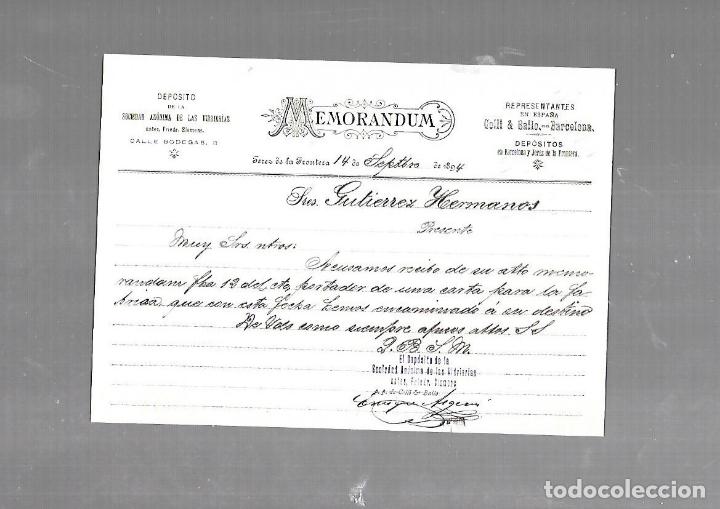 DEPÓSITO
DE LA
SOCIEDAD ANÓNIMA DE LAS VIDRIERIAS
antes, Friedr. Siemens.
CALLE BODEGAS,
MEMORANDUM
REPRESENTANTES
EN ESPAÑA
Colli & Ballo.—Barcelona.
DEPÓSITOS
en Barcelona y Jerez de la Frontera.
Jerez de la Frontera 14 de Septbre de 1894
Sres. Gutierrez Hermanos
Presente
Muy Srs. ntros:
Acusamos recibo de su atto memo-
randum fha 12 del cte, portador de una carta para la fá-
brica que con esta fecha hemos encaminado á su destino
De Vds como siempre afmos attos. S S
Q. B. S. M.
El Depósito de la
Sociedad Anónima de las Vidrierias
antes, Friedr. Siemens
p. p. de Colli & Ballo
Enrique
todocoleccion.net